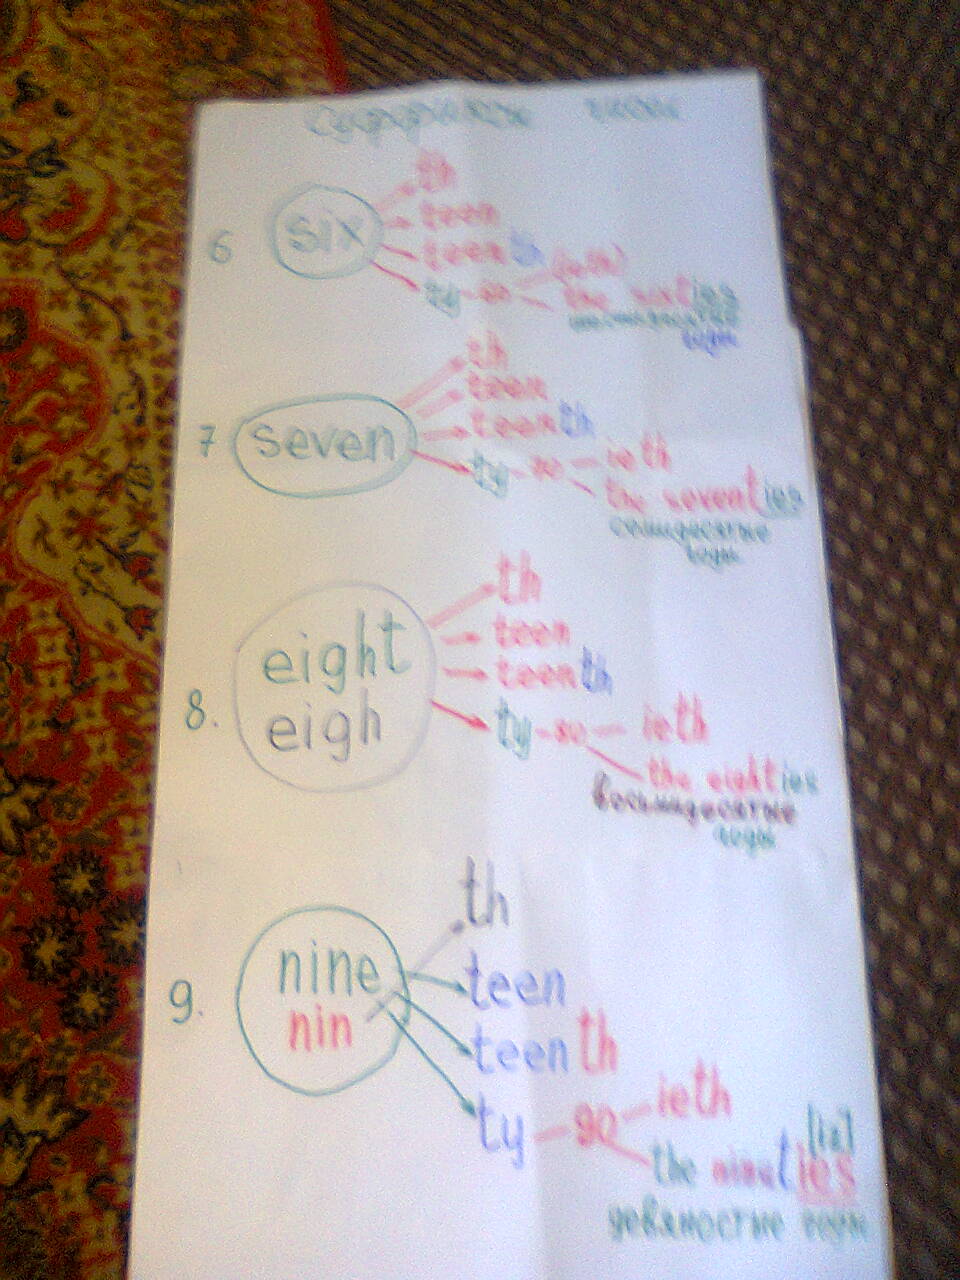 th
6 six teen
teenth (ieth)
ty - 60 - the sixties
шестидесятые
годы
th
teen
7 seven teenth
ty - 70 - ieth
the seventies
семидесятые
годы
th
eight teen
teenth
8. eigh ty - 80 - ieth
the eighties
восьмидесятые
годы
th
nine teen
9. nin teenth
ty - 90 - ieth
[iz]
the nineties
девяностые годы